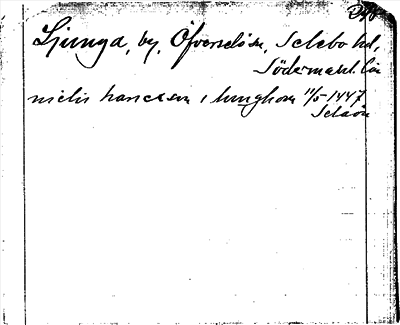 Ljunga, by, Öfverselö sn, Selebo hd,
Södermanl. län
nielis haneson i liunghom 11/5-1447
Selaön